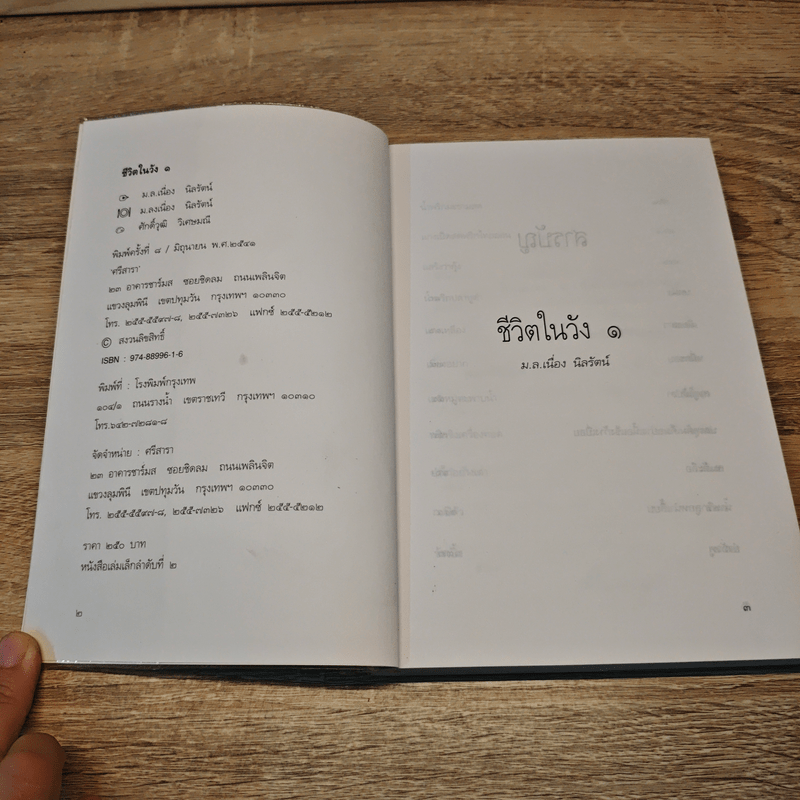 ชีวิตในวัง ๑
ม.ล.เนื่อง นิลรัตน์
ม.ลงเนื่อง นิลรัตน์
ศักดิ์วุฒิ วิเศษมณี
พิมพ์ครั้งที่ ๘ / มิถุนายน พ.ศ.๒๕๔๑
'ศรีสารา'
๒๓ อาคารชาร์มส ซอยชิดลม ถนนเพลินจิต
แขวงลุมพินี เขตปทุมวัน กรุงเทพฯ ๑๐๓๓๐
โทร. ๒๕๕-๕๕๙๗-๘, ๒๕๕-๗๓๒๖ แฟกซ์ ๒๕๕-๕๒๑๒
© สงวนลิขสิทธิ์
ISBN : 974-88996-1-6
พิมพ์ที่ : โรงพิมพ์กรุงเทพ
๑๐๔/๑ ถนนรางน้ำ เขตราชเทวี กรุงเทพฯ ๑๐๓๑๐
โทร.๖๔๒-๗๒๘๑-๘
จัดจำหน่าย : ศรีสารา
๒๓ อาคารชาร์มส ซอยชิดลม ถนนเพลินจิต
แขวงลุมพินี เขตปทุมวัน กรุงเทพฯ ๑๐๓๓๐
โทร. ๒๕๕-๕๕๙๗-๘, ๒๕๕-๗๓๒๖ แฟกซ์ ๒๕๕-๕๒๑๒
ราคา ๒๕๐ บาท
หนังสือเล่มเล็กลำดับที่ ๒
๒
ชีวิตในวัง ๑
ม.ล.เนื่อง นิลรัตน์
๓